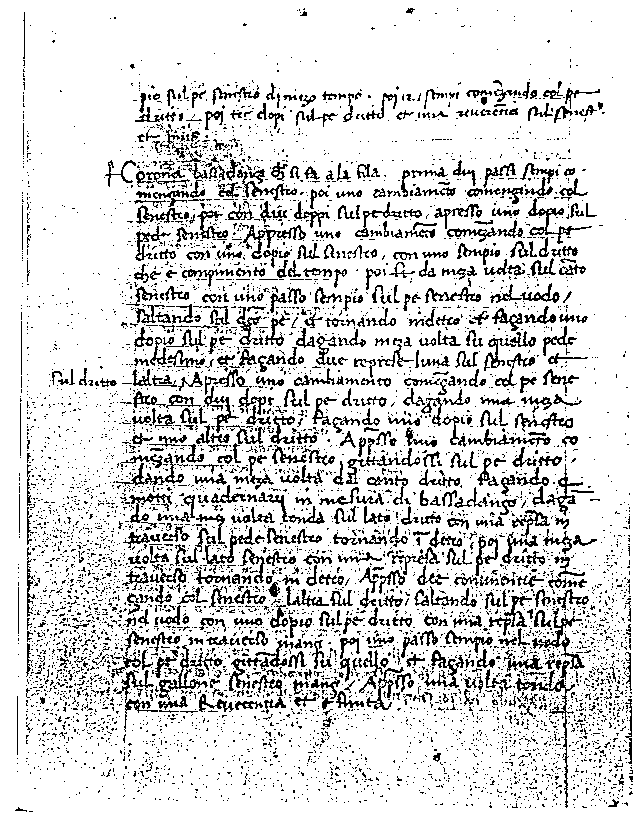 pie sul pe senestro di mezo tempo. poi iz, sempi comẽzando col pe
dritto. poi tre dopi sul pe dritto et una reverẽcia sul senest.
et finis.
Corona bassadanza et si fa a la fila. prima dui passi sempi co-
menzando col senestro. poi uno cambiamẽto comenzando col
senestro, poi con dui doppi sul pe dritto, apresso uno dopio sul
pede senestro. Appresso uno cambiamẽto comẽzando col pe
dritto con uno dopio sul senestro, con uno sempio sul dritto
che e compimento del tempo. poi se da meza volta sul cãto
senestro con uno passo sempio sul pe senestro nel vodo,
saltando sul dẽo pe, et tornando indetro et fazando uno
dopio sul pe dritto dagando meza volta su quello pede
medesimo, et fazando due represe luna sul senestro et
sul dritto
laltra, Apresso uno cambiamento comẽzando col pe sene
stro con dui dopi sul pe dritto, dagando una meza
volta sul pe dritto, fazando uno dopio sul senestro
et uno altro sul dritto. Appsso uno cambiamẽto co
mẽzando col pe senestro, gittandossi sul pe dritto
dando una meza volta dal canto dritto, fazando
motti quadernarii in mesura di bassadanza, daga
do una meza volta tonda sul lato dritto con una represa in
traverso sul pede senestro tornando ĩ detro, poi una meza
volta sul lato senestro con una represa sul pe dritto in
traverso tornando in detro, Appsso doe continentie comẽ
zando col senestro laltra sul dritto, saltando sul pe senestro
nel vodo con uno dopio sul pe dritto con una repsa sul pe
senestro in traverso poi uno passo sempio nel vodo
col pe dritto gittandossi su quello et fazando una repsa
sul gallone senestro Appsso una volta tonda
con una Reverentia et e finita